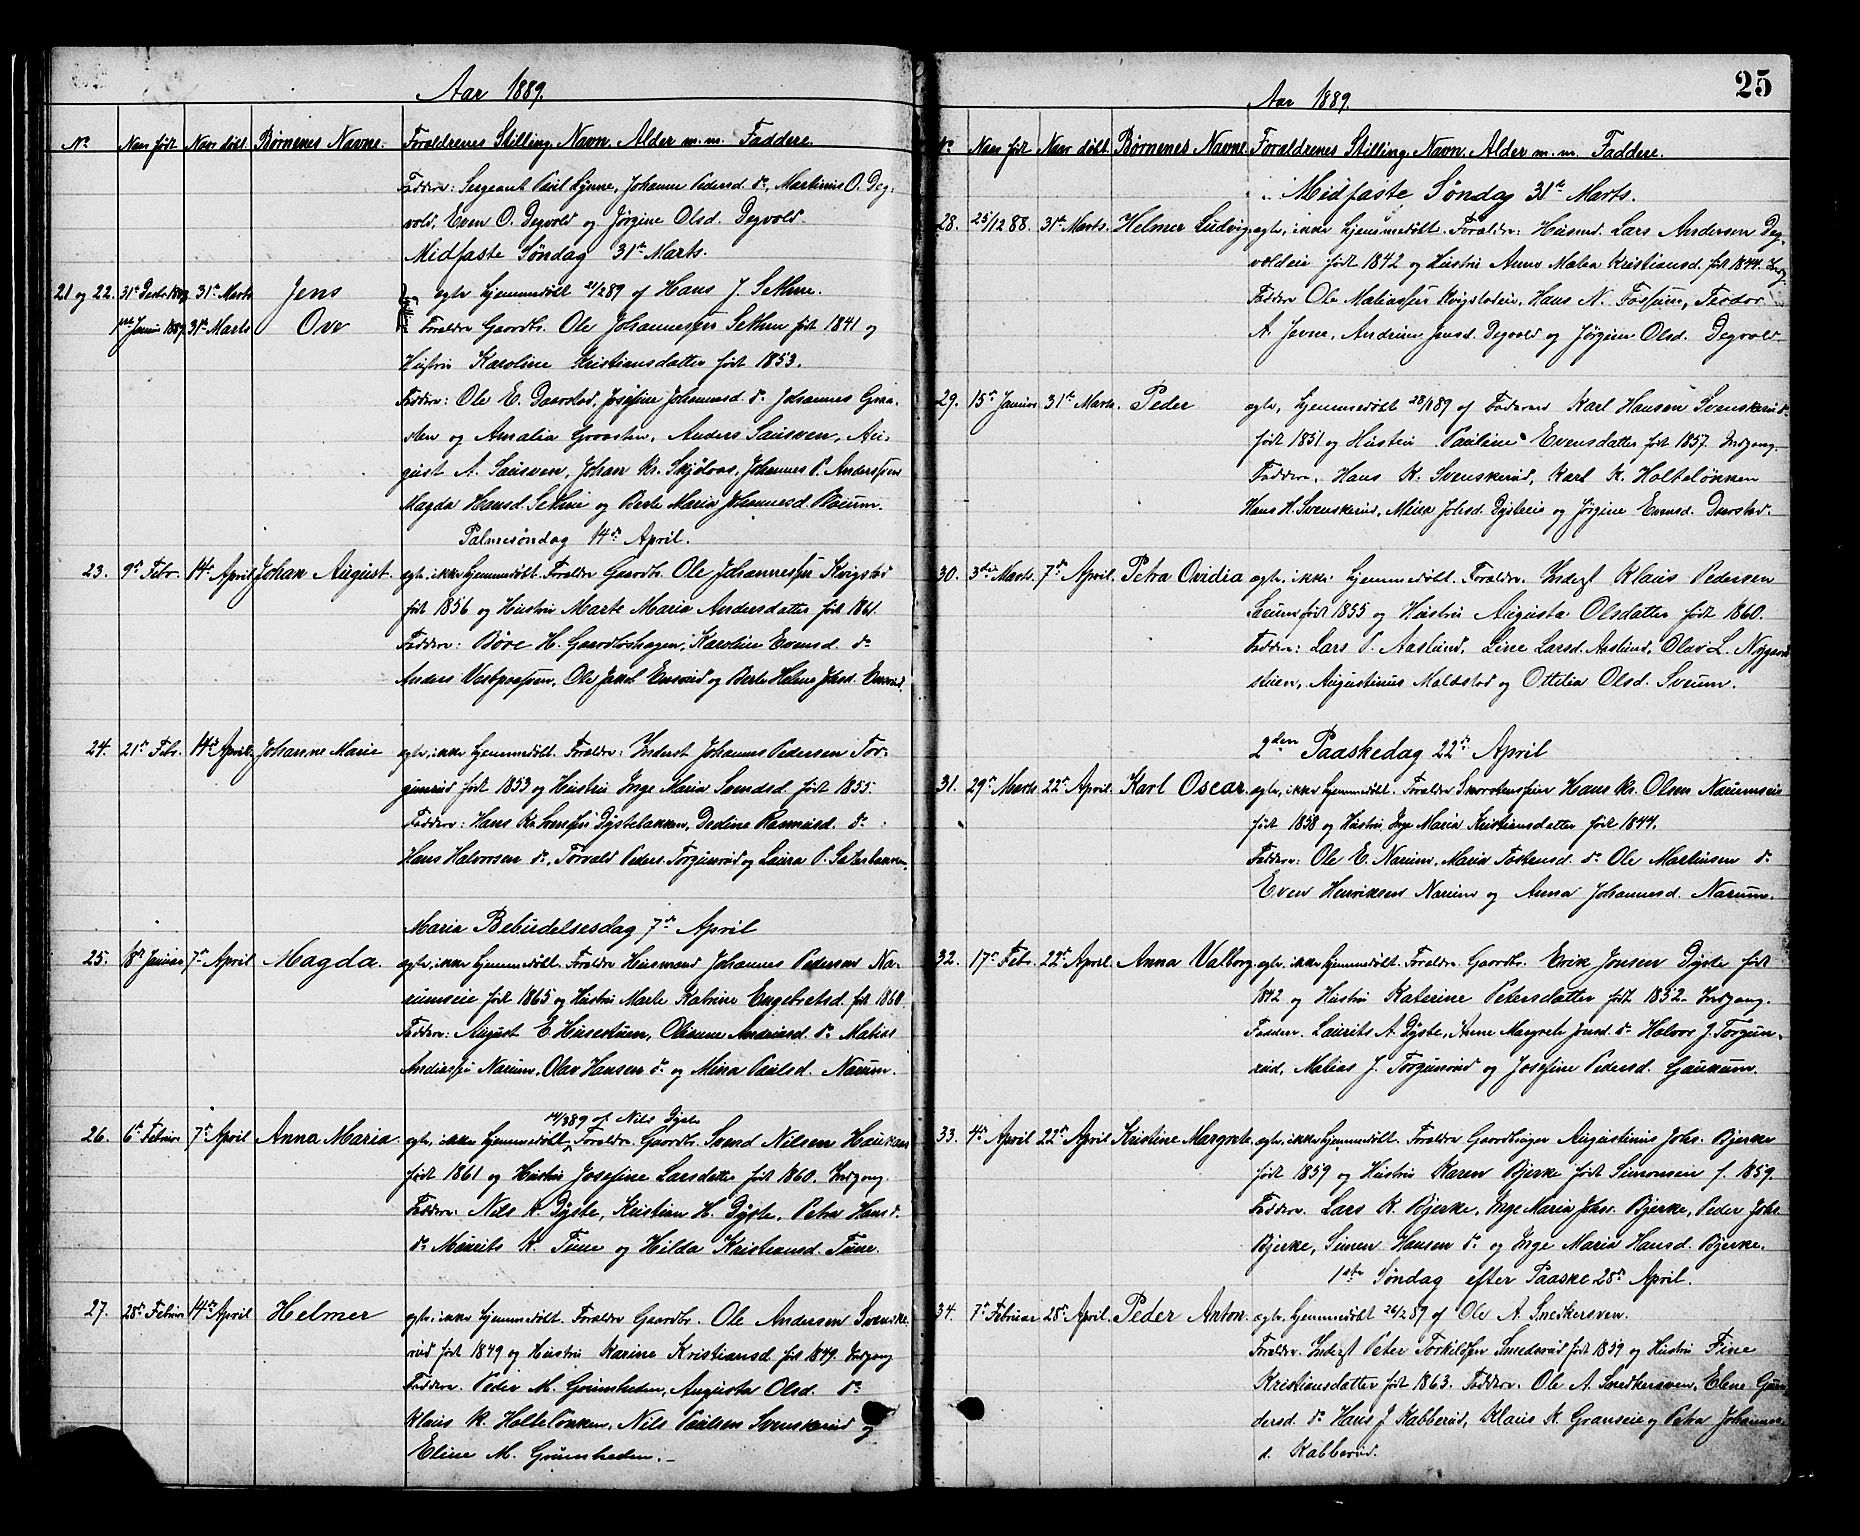 Aar 1889.
No Naar født Naar døbt Børnenes Navne. Forældrenes Stilling, Navn, Alder m.m. Faddere.
Faddere: Sergeant Paul Lynne, Johanne Pedersd. do, Martinus O. Deg-
vold, Even O. Degvold og Jørgine Olsd. Degvold.
Midfaste Søndag 31te Marts.
21 og 22. 31te Decbr. 31te Marts Jens ægte hjemmedøbt 21/2 89 af Hans J. Sethne.
1ste Januar 1889. 31te Marts Ove Forældre Gaardbr. Ole Johannessen Sethne født 1841 og
Hustru Karoline Kristiansdatter født 1853.
Faddere: Ole E. Daarstad, Josefine Johannesd. do Johannes Graa-
sten og Amalia Graasten, Anders Sausven, Au-
gust A. Sausven, Johan Kr. Skjølaas, Johannes P. Anderssen
Magda Hansd. Sethne og Berte Maria Johannesd.
Palmesøndag 14de April.
23. 9de Febr. 14de April Johan August. ægte, ikke hjemmedøbt. Forældre Gaardbr. Ole Johannessen Kvigstad
født 1856 og Hustru Marte Maria Andersdatter født 1861.
Faddere: Børe H. Gaardløshagen, Karoline Evensd. do
Anders Ole Jakob Ensrud og Berte Helene Johsd. Ensrud.
24. 21de Feb. 14de April. Johanne Marie ægte, ikke hjemmedøbt. Forældre: Inderst Johannes Pedersen Tor-
gunrud født 1853 og Hustru Inge Maria Svendsd. født 1855.
Faddere: Hans Kr. Svensen Dystebakken, Dedine Rasmusd. do
Hans Halvorsen do, Torvald Peders. Torgunrud og Laura P.
Maria Bebudelsesdag 7de April
25. 18de Januar 7de April Magda. ægte, ikke hjemmedøbt. Forældre Husmand Johannes Pedersen Na-
rumseie født 1865 og Hustru Marte Katrine Engebretsd. født 1860.
Faddere: August E. Husestuen, Olianne Andreasd. do Matias
Andersen Narum, Olav Hansen do og Mina Paulsd. Narum.
14/3 89 af Nils Dyste
26. 6te Februar 7de April Anna Maria. ægte, ikke hjemmedøbt. Forældre Gaardbr. Svend Nilsen Haukaas
født 1861 og Hustru Josefine Larsdatter født 1860. Indgang.
Faddere: Nils K. Dyste, Kristian H. Dyste, Petra Hansd.
do Maurits K. Tune og Hilda Kristiansd. Tune.
27. 28de Februar 14de April Helmer ægte, ikke hjemmedøbt. Forældre Gaardbr. Ole Andersen Svenske
rud født 1849 og Hustru Karine Kristiansd. født 1849. Indgang
Faddere. Peder M. Grimsheden, Augusta Olsd. do
Klaus K. Holteløkken, Nils Paulsen Svenskerud og
Eline M. Grimsheden.
25
Aar 1889.
No Naar født Naar døbt. Børnenes Navne Forældrenes Stilling, Navn, Alder m.m. Faddere.
Midfaste Søndag 31te Marts.
28. 25/12 88. 31te Marts. Helmer Ludvig ægte, ikke hjemmedøbt. Forældre: Husmd. Lars Andersen Deg-
voldeie født 1842 og Hustru Anne Malea Kristiansd. født 1844. Indg.
Faddere Ole Matiassen Kvigstadeie, Hans N. Fossum, Teodor
A. Jevne, Andrine Jensd. Degvold og Jørgine Olsd. Degvold.
29. 15de Januar 31te Marts. Peder ægte, hjemmedøbt 28/1 89 af Faderen Karl Hansen Svenskerud
født 1851 og Hustru Pauline Evensdatter født 1857. Indgang.
Faddere, Hans K. Svenskerud, Karl K. Holteløkken
Hans H. Svenskerud, Mina Johsd. Dysteie og Jørgine Evensd. Daarstad.
30. 3die Marts. 7de April. Petra Ovidia ægte, ikke hjemmedøbt. Forældre. Inderst Klaus Pedersen
Sveum født 1855 og Hustru Augusta Olsdatter født 1860.
Faddere: Lars P. Aaslund, Line Larsd. Aaslund, Olav L. Nygaard
stuen, Augustinus Moldstad og Ottilia Olsd. Sveum.
2den Paaskedag 22de April
31. 29de Marts 22de April. Karl Oscar. ægte, ikke hjemmedøbt. Forældre Skorstensfeier Hans Kr. Olsen Narumseie
født 1858 og Hustru Inge Maria Kristiansdatter født 1844.
Faddere: Ole E. Narum, Maria Tostensd. do Ole Martinsen do
Even Henriksen Narum og Anna Johannesd. Narum.
32. 17de Feb. 22de April. Anna Valborg. ægte, ikke hjemmedøbt. Forældre Gaardbr. Erik Jonsen Dyste født
1842 og Hustru Katerine Petersdatter født 1852. Indgang.
Faddere. Laurits A. Dyste, Anne Margrete Jonsd. do Halvor J. Torgun-
rud, Matias J. Torgunrud og Josefine Pedersd. Gaukum.
33. 4de April 22de April Kristine Margrete. ægte, ikke hjemmedøbt. Forældre Gaardbruger Augustinus Johs. Bjerke
født 1859 og Hustru Karen Bjerke født Simonsen f. 1859.
Faddere. Lars K. Bjerke, Inge Maria Johs. Bjerke, Peder Johs.
Bjerke, Simen Hansen do og Inge Maria Hansd. Bjerke.
1ste Søndag efter Paaske 28de April.
34. 7de Februar 28de April. Peder Anton. ægte, hjemmedøbt 26/2 89 af Ole A. Snedkersven.
Forældre. Inderst Peter Torkildsen Smedsrud født 1859 og Hustru Tine
Kristiansdatter født 1863. Faddere. Ole A. Snedkersven, Elene Gun-
dersd. do Hans J. Kabberud, Klaus K. Granseie og Petra Johannes
d. Kabberud.